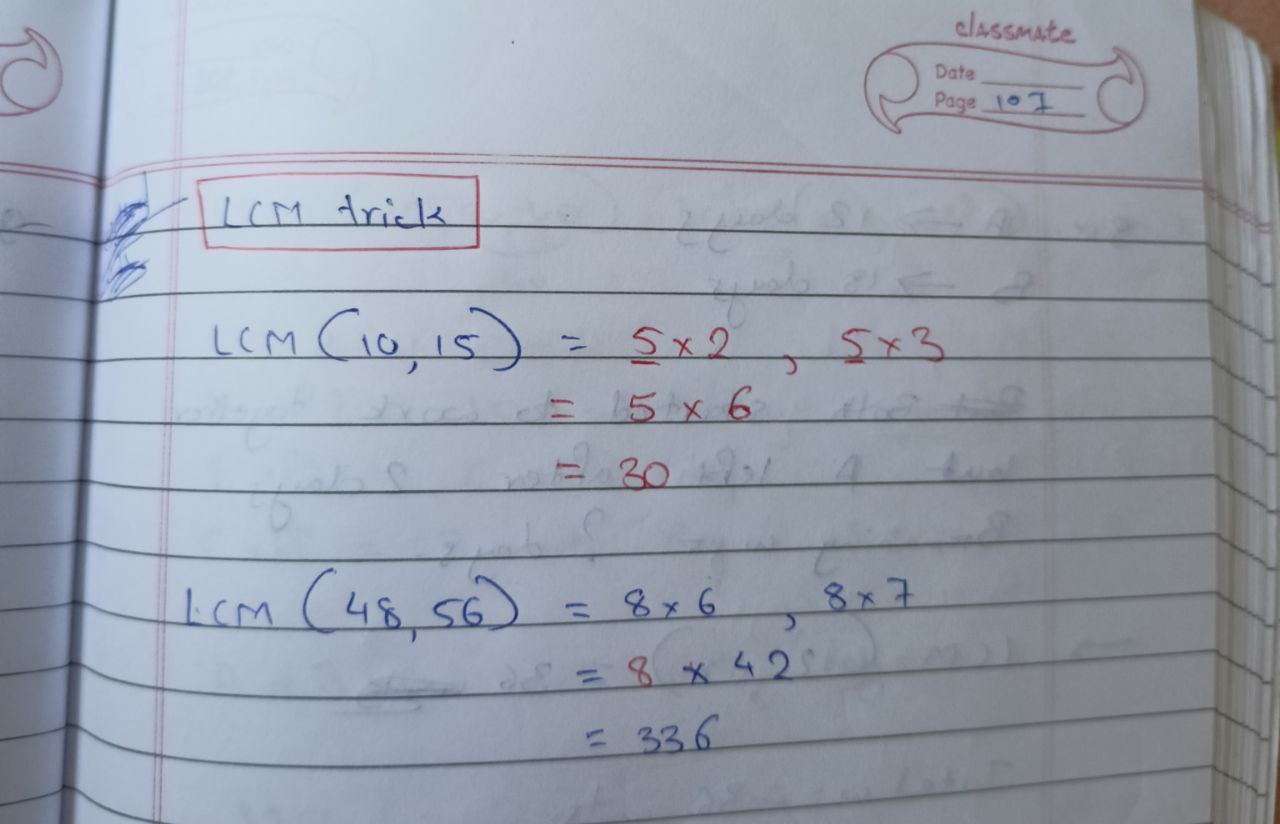 classmate
Date
Page 107
LCM trick
LCM (10, 15) = 5 x 2 , 5 x 3
= 5 x 6
= 30
LCM (48, 56) = 8 x 6 , 8 x 7
= 8 x 42
= 336